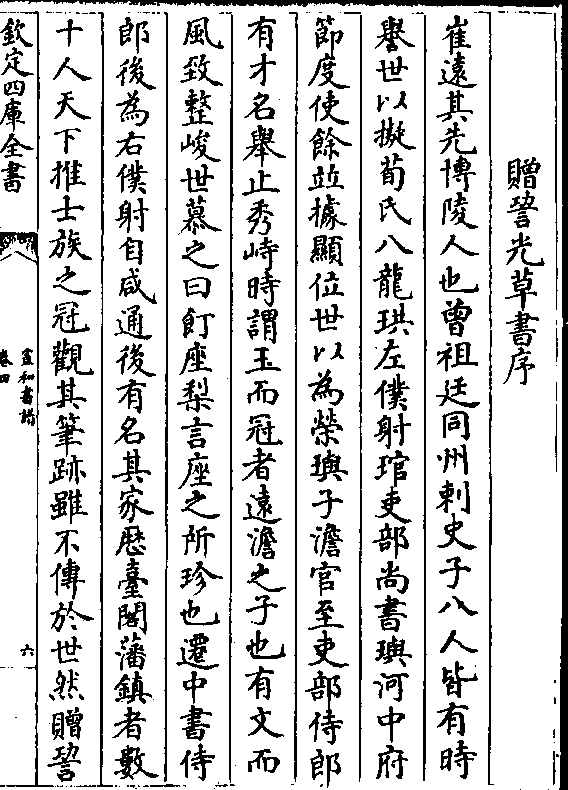 贈䛒光草書序
崔遠其先博陵人也曾祖廷同州刺史子八人皆有時
譽世以擬荀氏八龍珙左僕射琯吏部尚書璵河中府
節度使餘並據顯位世以為榮璵子澹官至吏部侍郎
有才名舉止秀峙時謂玉而冠者遠澹之子也有文而
風致整峻世慕之曰飣座梨言座之所珍也遷中書侍
郎後為右僕射自咸通後有名其家歴臺閣藩鎮者數
十人天下推士族之冠觀其筆跡雖不傳於世然贈䛒
欽定四庫全書
宣和書譜
卷四
六